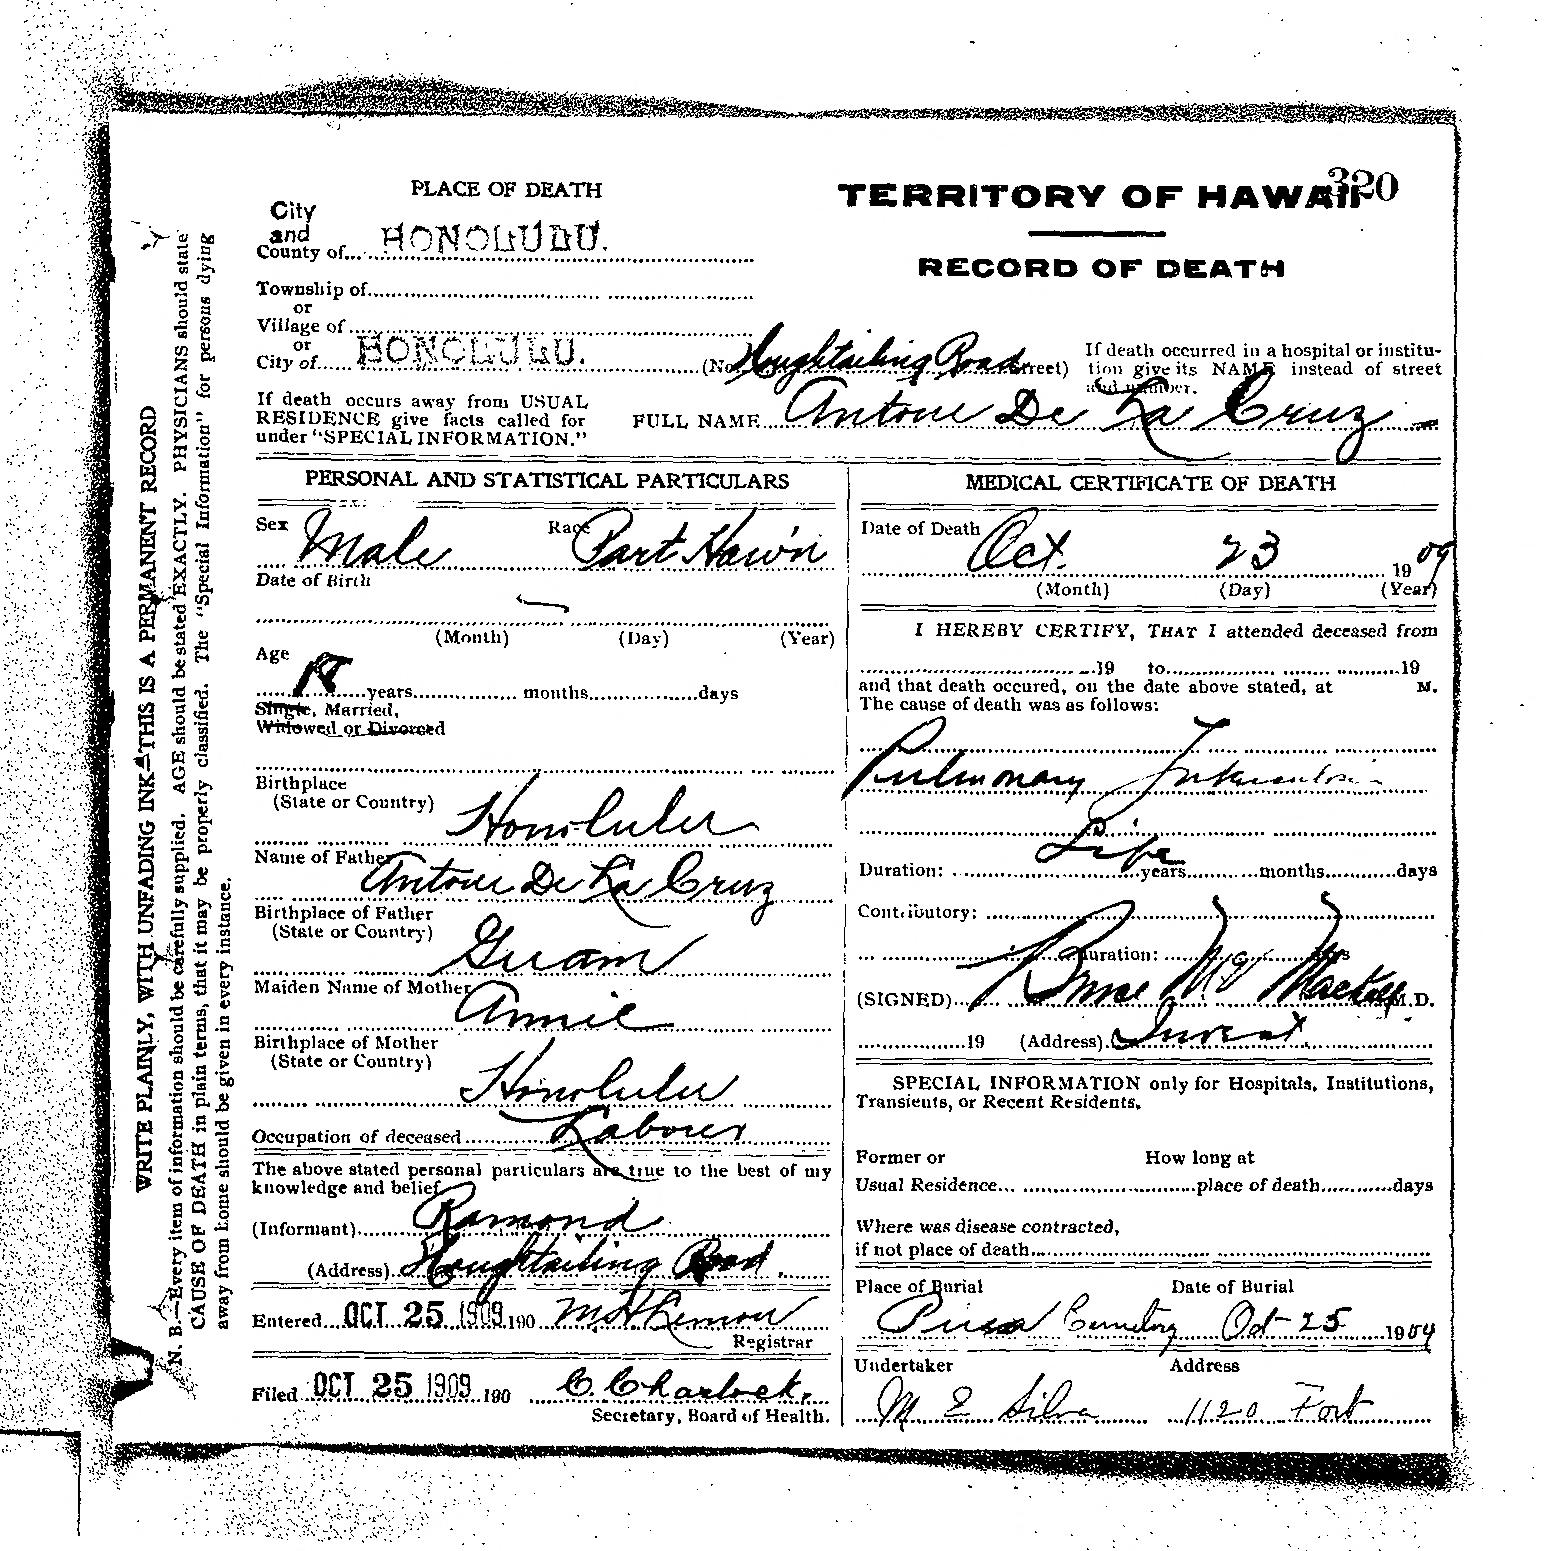 320
PLACE OF DEATH
TERRITORY OF HAWAII
City
and
County of HONOLULU.
RECORD OF DEATH
Township of
or
Village of
or
City of HONOLULU. (No Houghtailing Road Street)
If death occurred in a hospital or institu-
tion give its NAME instead of street
and number.
If death occurs away from USUAL
RESIDENCE give facts called for
under "SPECIAL INFORMATION."
FULL NAME Antone De La Cruz
PERSONAL AND STATISTICAL PARTICULARS
Sex Male Race Part Haw'n
Date of Birth
(Month) (Day) (Year)
Age
years months days
Single, Married,
Widowed or Divorced
Birthplace
(State or Country) Honolulu
Name of Father Antone De La Cruz
Birthplace of Father
(State or Country) Guam
Maiden Name of Mother Annie
Birthplace of Mother
(State or Country) Honolulu
Occupation of deceased Laborer
The above stated personal particulars are true to the best of my
knowledge and belief
(Informant) Ramond
(Address) Houghtailing Road
Entered OCT 25 1909 190
Registrar
Filed OCT 25 1909 190 C. Charlock.
Secretary, Board of Health.
MEDICAL CERTIFICATE OF DEATH
Date of Death Oct. 23 1909
(Month) (Day) (Year)
I HEREBY CERTIFY, THAT I attended deceased from
19 to 19
and that death occured, on the date above stated, at M.
The cause of death was as follows:
Pulmonary Tuberculosis
Duration: Life years months days
Contributory:
Duration:
(SIGNED) Bruce McV Mackall M.D.
19 (Address)
SPECIAL INFORMATION only for Hospitals, Institutions,
Transients, or Recent Residents.
Former or How long at
Usual Residence place of death days
Where was disease contracted,
if not place of death
Place of Burial Date of Burial
Puea Cemetery Oct 25 1909
Undertaker Address
M E Silva 1120 Fort
WRITE PLAINLY, WITH UNFADING INK—THIS IS A PERMANENT RECORD
N. B.—Every item of information should be carefully supplied. AGE should be stated EXACTLY. PHYSICIANS should state
CAUSE OF DEATH in plain terms, that it may be properly classified. The "Special Information" for persons dying
away from home should be given in every instance.